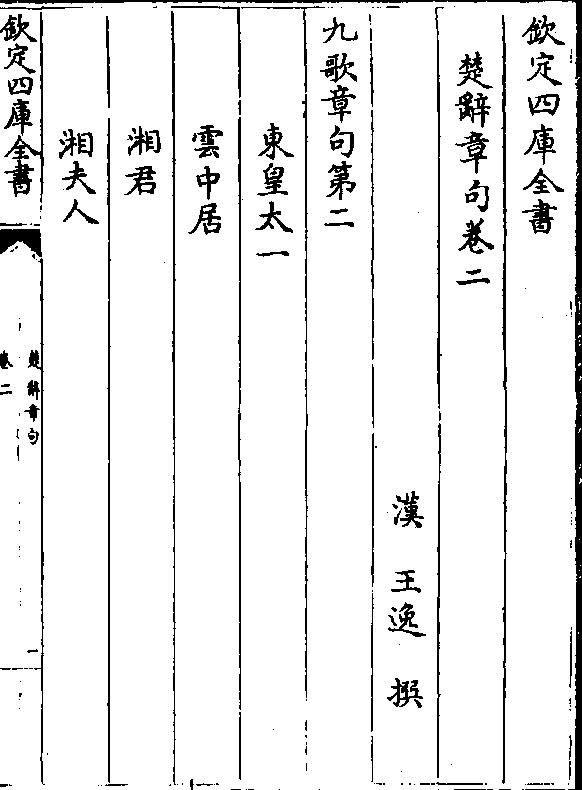 欽定四庫全書
楚辭章句卷二
漢 王逸 撰
九歌章句第二
東皇太一
雲中居
湘君
湘夫人
欽定四庫全書
楚辭章句
卷二
一